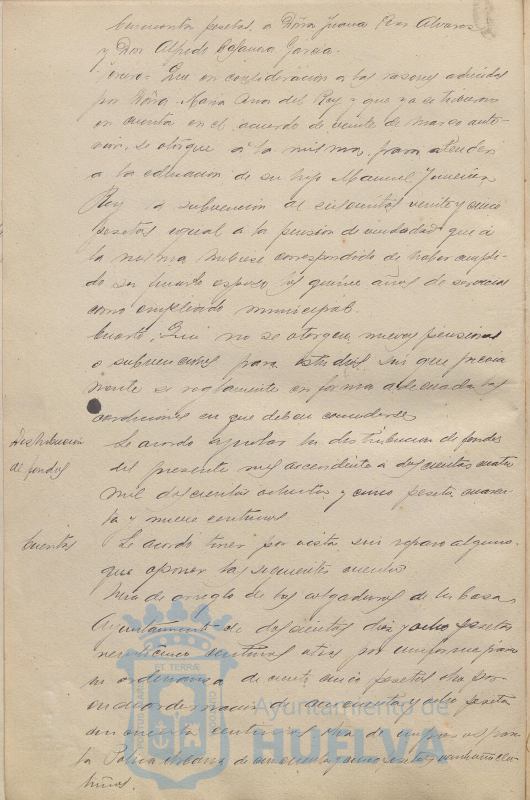 cincuenta pesetas, a Doña Juana Alvarez
y Don Alfredo García.
Que en consideración a las razones aducidas
por Doña María Ana del Rey y que ya se tuvieron
en cuenta en el acuerdo de veinte de marzo ante-
rior, se otorgue a la misma para atender
a la educación de su hijo Manuel
Rey la subvención de quinientas veinte y cinco
pesetas igual a la pension de viudedad que a
la misma hubiese correspondido de haber cumpli-
do su difunto esposo los quince años de servicios
como empleado municipal.
Cuarto. Que no se otorguen nuevas pensiones
o subvenciones para estudios sin que previa
mente se reglamente en forma adecuada las
condiciones en que deban concederse.
Distribución
de fondos
Se acordó aprobar la distribucion de fondos
del presente mes ascendente a doscientas cuatro
mil doscientas ochenta y cinco pesetas cuaren
ta y nueve centimos
Cuentas
Se acordó tener por vista sin reparo alguno
que oponer las siguientes cuentas
Una de arreglo de las colgaduras de la Casa
Ayuntamiento de doscientas diez y ocho pesetas
centimos otra por uniforme para
un ordenanza de ciento cinco pesetas otra por
de cincuenta y ocho pesetas
cincuenta centimos otra de para
la Policía Urbana de
timos.
ET TERRÆ
Ayuntamiento de
HUELVA